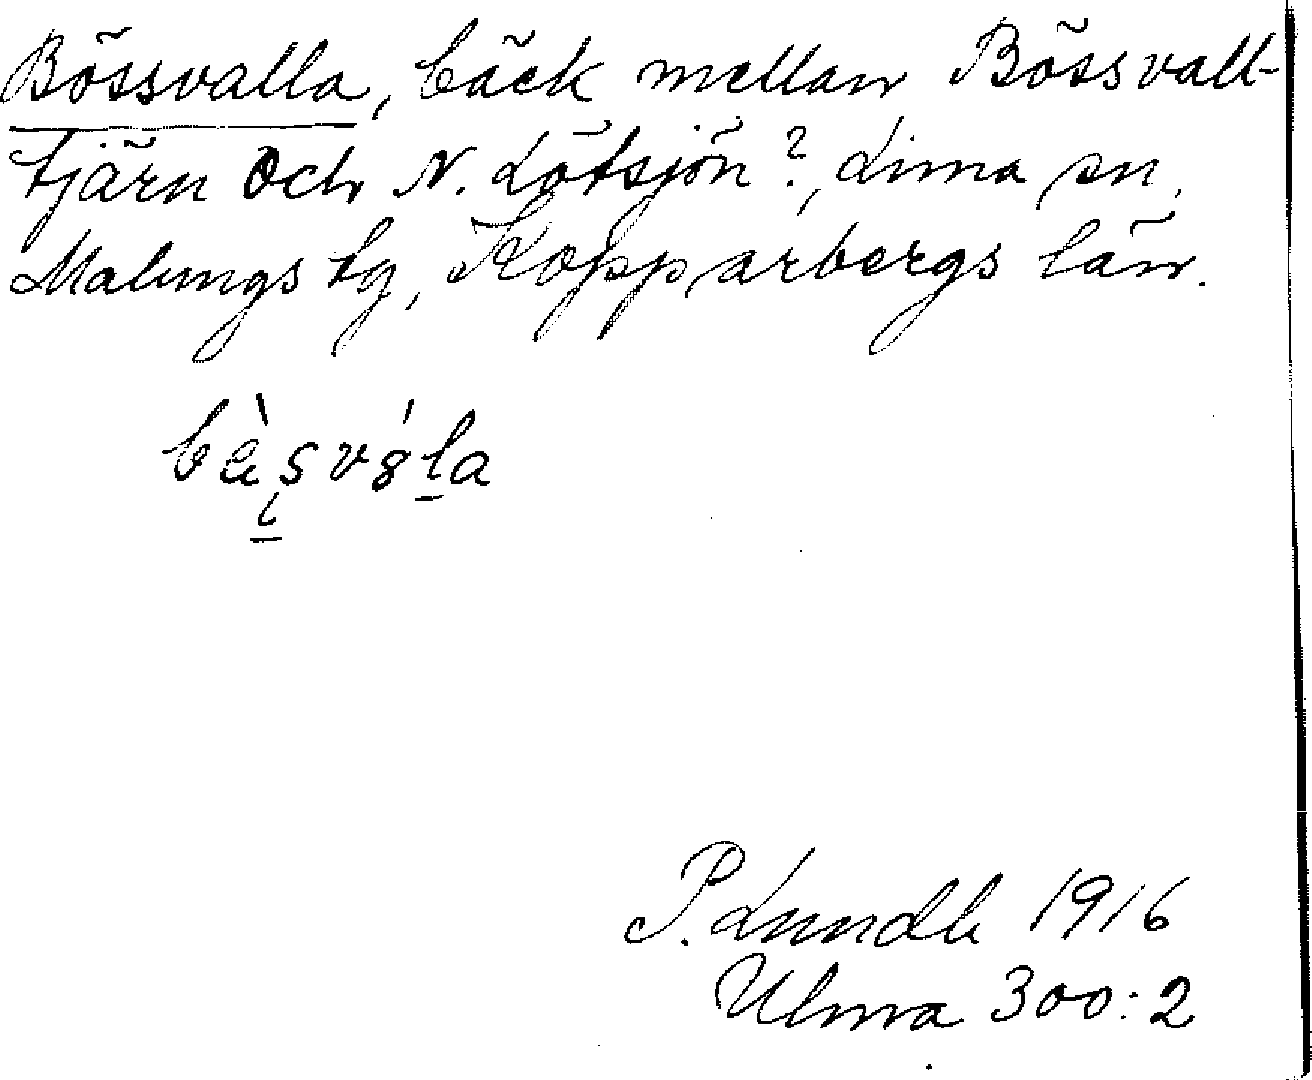 Bössvalla, bäck mellan Bössvall-
tjärn och N. Lötsjön?, Lima sn,
Malungs tg, Kopparbergs län.
P. Lundh 1916
Ulma 300:2